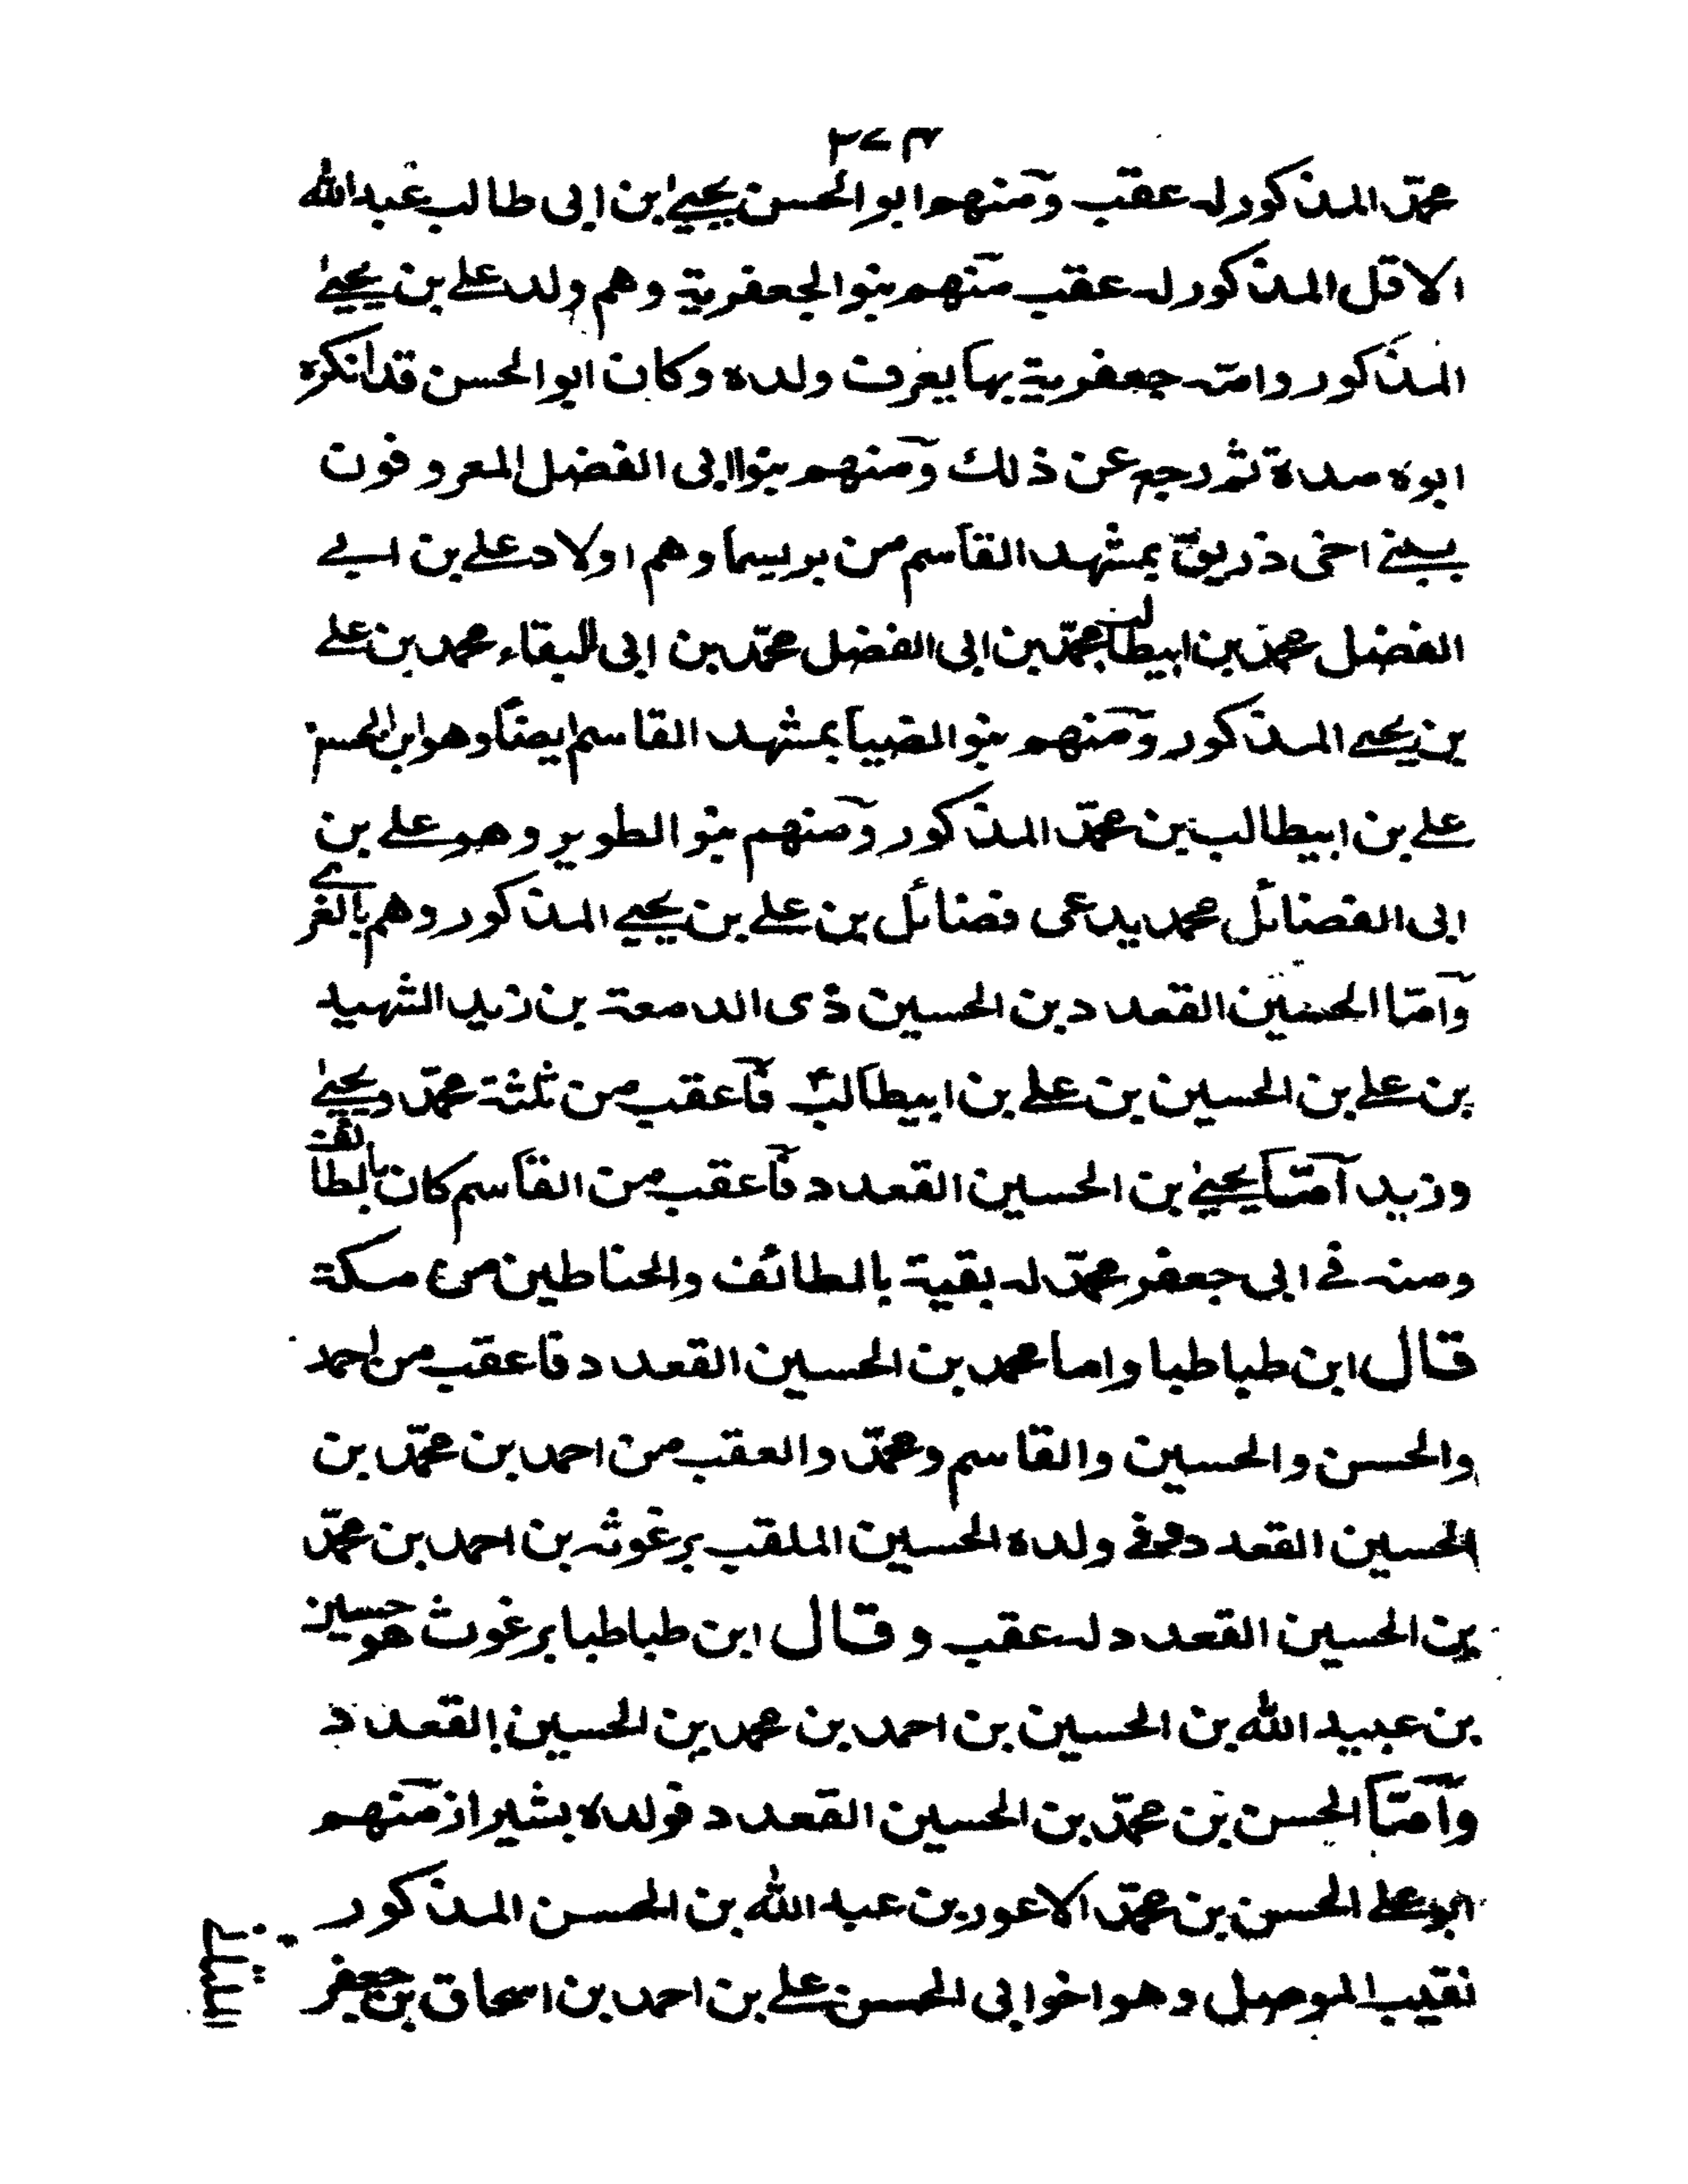 ٣٧٣
محمّد المذكور له عقب ومنهم ابو الحسن يحيىٰ بن ابى طالب عبدالله
الاقل المذكور له عقب منهم بنو الجعفرية وهم ولد على بن يحيىٰ
المذكور وامّه جعفرية بها يعرف ولده وكان ابو الحسن قد انكره
ابوه مدة ثم رجع عن ذلك ومنهم بنوا ابى الفضل المعروفون
ببنى اخى ذريق بمشهد القاسم من بريسما وهم اولاد على بن ابى
الفضل محمد بن ابيطالب محمّد بن ابى الفضل محمّد بن ابى البقاء محمد بن على
بن يحيى المذكور ومنهم بنو الضيا بمشهد القاسم ايضاً وهو ابن الحسن
على بن ابيطالب بن محمّد المذكور ومنهم بنو الطوير وهو على بن
ابى الفضائل محمد يدعى فضائل بن على بن يحيى المذكور وهم بالغرى
وامّا الحسين القعدد بن الحسين ذى الدمعة بن زيد الشهيد
بن على بن الحسين بن على بن ابيطالبؑ فاعقب من ثلثة محمّد ويحيىٰ
وزيد امّا يحيىٰ بن الحسين القعدد فاعقب من القاسم كان بالطالقن
ومنه فى ابى جعفر محمّد له بقية بالطائف والحناطين من مكة
قال ابن طباطبا واما محمد بن الحسين القعدد فاعقب من احمد
والحسن والحسين والقاسم ومحمّد والعقب من احمد بن محمّد بن
الحسين القعدد فى ولده الحسين الملقب برغوثه بن احمد بن محمّد
بن الحسين القعدد له عقب وقال ابن طباطبا برغوث هو حسين
بن عبيد الله بن الحسين بن احمد بن محمد بن الحسين القعدد
وامّا الحسن بن محمّد بن الحسين القعدد فولده بشيراز منهم
ابو على الحسن بن محمّد الاعور بن عبد الله بن الحسن المذكور
نقيب الموصل وهو اخو ابى الحسن على بن احمد بن اسحاق بن جعفر